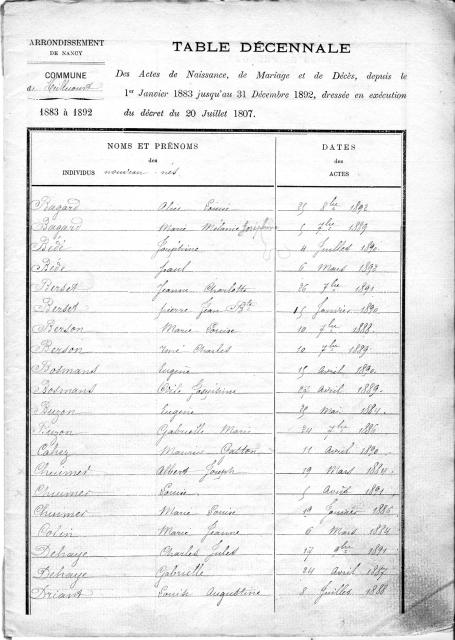 ARRONDISSEMENT
DE NANCY
COMMUNE
de
1883 à 1892
TABLE DÉCENNALE
Des Actes de Naissance, de Mariage et de Décès, depuis le
1er Janvier 1883 jusqu'au 31 Décembre 1892, dressée en exécution
du décret du 20 Juillet 1807.
NOMS ET PRÉNOMS
des
INDIVIDUS nouveau-nés
DATES
des
ACTES
Bagard Alice Louise 25 8bre 1892
Bagard Marie Mélanie Joséphine 5 7bre 1889
Bédé Joséphine 4 Juillet 1890
Bédé Paul 6 Mars 1892
Berset Jeanne Charlotte 26 7bre 1891
Berset Pierre Jean Bte 15 Janvier 1890
Berson Marie Louise 10 7bre 1888
Berson René Charles 10 7bre 1889
Bosmans Eugénie 15 avril 1890
Bosmans Odile Joséphine 22 avril 1889
Buzon Eugène 25 Mai 1884
Buzon Gabrielle Marie 24 7bre 1886
Cahez Maurice Gaston 11 Avril 1890
Chuimer Albert Joseph 19 Mars 1884
Chuimer Louise 5 Août 1891
Chuimer Marie Louise 19 Janvier 1886
Colin Marie Jeanne 6 Mars 1884
Dehaye Charles Jules 17 9bre 1891
Dehaye Gabrielle 24 avril 1887
Driant Louise Augustine 8 Juillet 1888